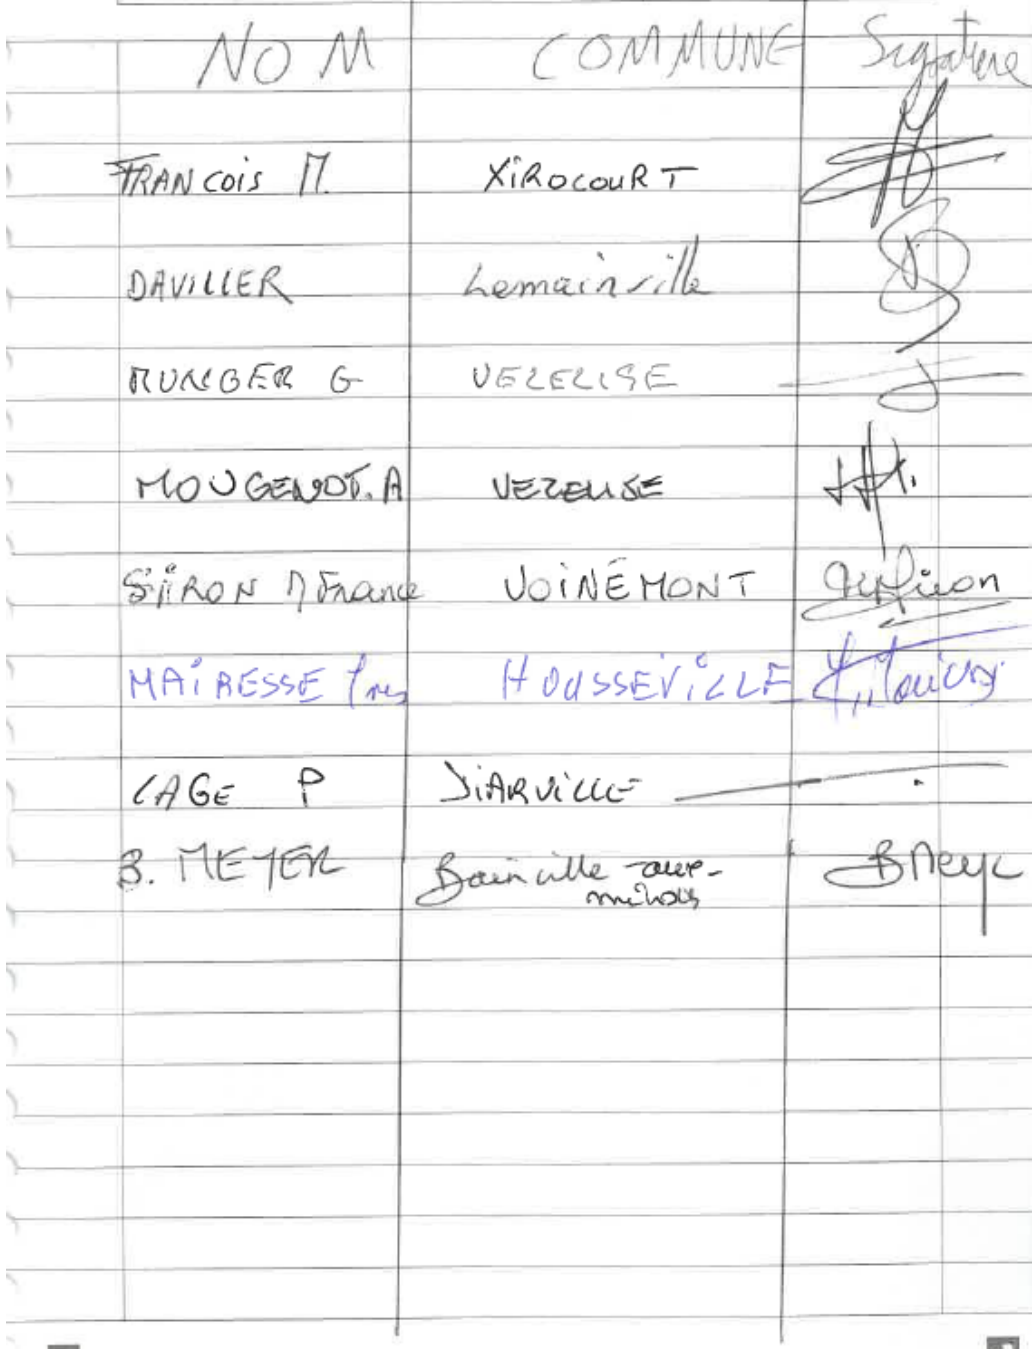 NOM COMMUNE Signature
FRANCOIS M. XIROCOURT
DAVILLER Lemainville
MUNGER G VEZELISE
MOUGENOT.A VEZELISE
SIRON M France VOINEMONT
MAIRESSE HOUSSEVILLE
CAGE P DIARVILLE
B. MEYER Bainville-aux-
miroirs